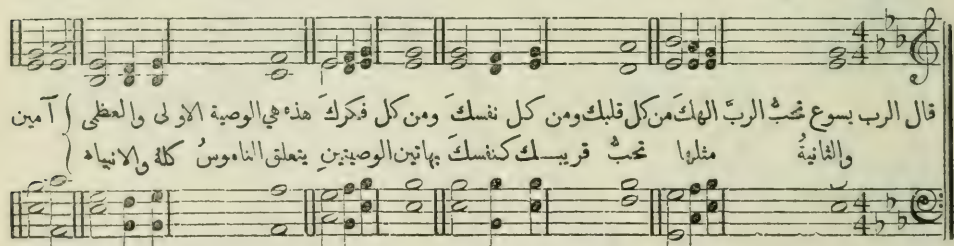 قال الرب يسوع تحبُّ الربَّ الهكَ من كل قلبك ومن كل نفسكَ ومن كل فكركَ هذه هي الوصية الاولى والعظمى } آمين
والثانيةُ مثلها تحبُّ قريبـــك كنفسكَ بهاتين الوصيتينِ يتعلق الناموسُ كلهُ والانبياء }